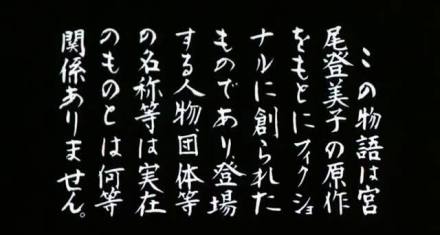 この物語は宮
尾登美子の原作
をもとにフィクショ
ナルに創られた
ものであり、登場
する人物、団体等
の名称等は実在
のものとは何等
関係ありません。